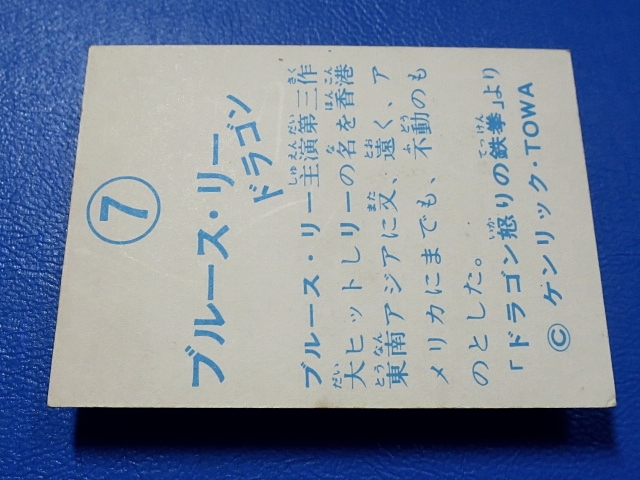 7
ブルース・リー
ドラゴン
ブルース・リー主演第三作
大ヒットしリーの名を香港
東南アジアに又、遠く、ア
メリカにまでも、不動のも
のとした。
「ドラゴン怒りの鉄拳」より
© ゲンリック・TOWA